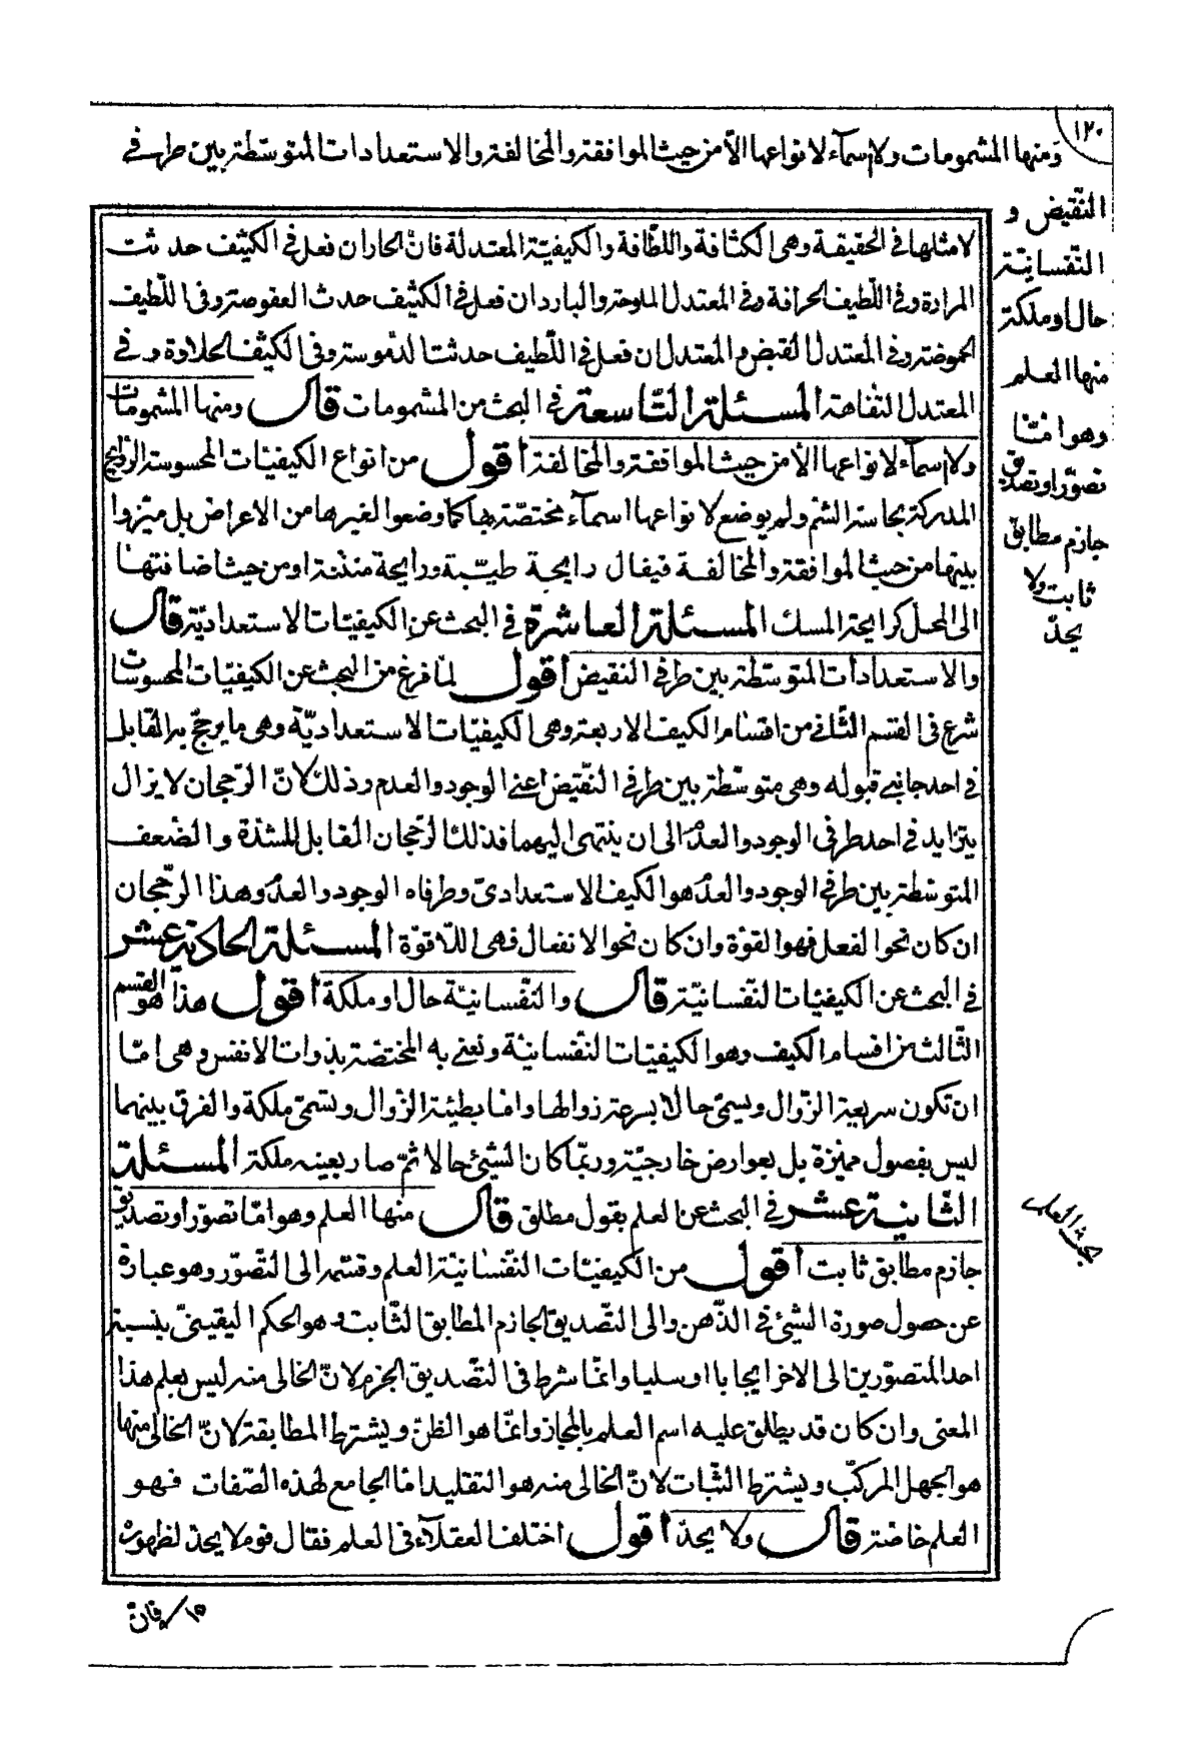 ١٢٠
ومنها المشمومات ولا اسمآء لانواعها الّا من حيث الموافقة والمخالفة والاستعدادات المتوسّطة بين طرفى
النّقيض و
النّفسانيّة
حال او ملكة
منها العلم
وهو امّا
تصوّر او تصديق
جازم مطابق
ثابت ولا
يحدّ
لا مثلها فى الحقيقة وهى الكثافة واللّطافة والكيفيّة المعتدلة فانّ الحار ان فعل فى الكثيف حدثت
المرارة وفى اللّطيف الحرافة وفى المعتدل الملوحة والبارد ان فعل فى الكثيف حدث العفوصة وفى اللّطيف
الحموضة وفى المعتدل القبض والمعتدل ان فعل فى اللّطيف حدثت الدّسومة وفى الكثيف الحلاوة وفى
المعتدل التّفاهة المسئلة التّاسعة فى البحث من المشمومات قال ومنها المشمومات
ولا اسمآء لانواعها الّا من حيث الموافقة والمخالفة أقول من انواع الكيفيّات المحسوسة الرّوايح
المدركة بحاسّة الشّم ولم يوضع لانواعها اسمآء مختصّة بها كما وضعوا لغيرها من الاعراض بل ميّزوا
بينها من حيث الموافقة والمخالفة فيقال رايحة طيّبة ورايحة منتنة او من حيث اضافتها
الى المحل كرايحة المسك المسئلة العاشرة فى البحث عن الكيفيّات الاستعداديّة قال
والاستعدادات المتوسّطة بين طرفى النّقيض أقول لمّا فرغ من البحث عن الكيفيّات المحسوسات
شرع فى القسم الثّانى من اقسام الكيف الاربعة وهى الكيفيّات الاستعداديّة وهى ما يرجّح به القابل
فى احد جانبى قبوله وهى متوسّطة بين طرفى النّقيض اعنى الوجود والعدم وذلك لانّ الرّجحان لا يزال
يتزايد فى احد طرفى الوجود والعدم الى ان ينتهى اليهما فذلك الرّجحان القابل للشدّة والضّعف
المتوسّطة بين طرفى الوجود والعدم هو الكيف الاستعدادىّ وطرفاه الوجود والعدم وهذا الرّجحان
ان كان نحو الفعل فهو القوّة وان كان نحو الانفعال فهى اللّاقوّة المسئلة الحادية عشر
فى البحث عن الكيفيّات النّفسانيّة قال والنّفسانيّة حال او ملكة أقول هذا هو القسم
الثّالث من اقسام الكيف وهو الكيفيّات النّفسانيّة ونعنى به المختصّة بذوات الانفس وهى امّا
ان تكون سريعة الزّوال ويسمّى حالا لسرعة زوالها وامّا بطيئة الزّوال وتسمّى ملكة والفرق بينهما
ليس بفصول مميّزة بل بعوارض خارجيّة وربّما كان الشّيئ حالا ثمّ صار بعينه ملكة المسئلة
الثّانية عشر فى البحث عن العلم بقول مطلق قال منها العلم وهو امّا تصوّر او تصديق
بحث العلم
جازم مطابق ثابت أقول من الكيفيّات النّفسانيّة العلم وقسّمه الى التّصوّر وهو عبارة
عن حصول صورة الشّيئ فى الذّهن والى التّصديق الجازم المطابق الثّابت وهو الحكم اليقينىّ بنسبة
احد المتصوّرين الى الاخر ايجابا او سلبا وانّما شرط فى التّصديق الجزم لانّ الخالى منه ليس بعلم هذا
المعنى وان كان قد يطلق عليه اسم العلم بالمجاز وانّما هو الظنّ ويشترط المطابقة لانّ الخالى منها
هو الجهل المركّب ويشترط الثّبات لانّ الخالى منه هو التقليد امّا الجامع لهذه الصّفات فهو
العلم خاصّة قال ولا يحدّ أقول اختلف العقلآء فى العلم فقال قوم لا يحدّ لظهوره